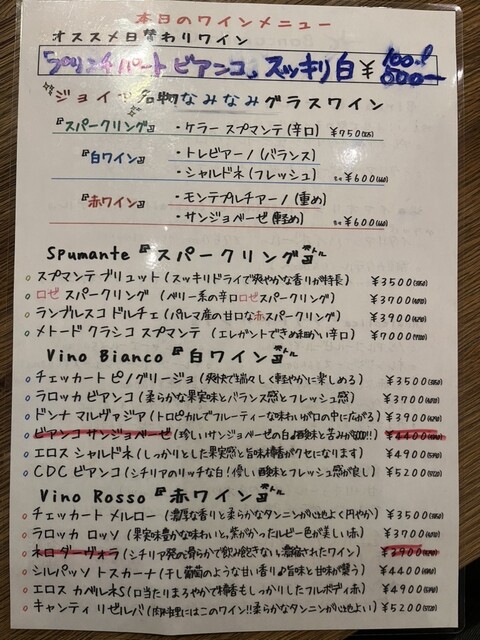 本日のワインメニュー
オススメ日替わりワイン
ビアンコ』スッキリ白 ¥
ジョイの名物なみなみグラスワイン
『スパークリング』 ・ケラー スプマンテ(辛口) ¥750
『白ワイン』 ・トレビアーノ(バランス)
・シャルドネ(フレッシュ) ¥600
『赤ワイン』 ・モンテプルチアーノ(重め)
・サンジョベーゼ(軽め) ¥600
Spumante 『スパークリング』ボトル
スプマンテ ブリュット(スッキリドライで爽やかな香りが特長) ¥3500
ロゼ スパークリング (ベリー系の辛口ロゼスパークリング) ¥3700
ランブルスコ ドルチェ(パルマ産の甘口な赤スパークリング) ¥3900
メトード クラシコ スプマンテ (エレガントできめ細かい辛口) ¥7000
Vino Bianco 『白ワイン』ボトル
チェッカート ピノグリージョ(爽快で瑞々しく軽やかに楽しめる) ¥3500
ラロッカ ビアンコ(柔らかな果実味とバランス感とフレッシュ感) ¥3700
ドンナ マルヴァジア(トロピカルでフルーティーな味わいが口の中に広がる) ¥3900
ビアンコ サンジョベーゼ(珍しいサンジョベーゼの白♪酸味と苦みが!!) ¥4400
エロス シャルドネ(しっかりとした果実感と旨味樽香がクセになります) ¥4900
CDC ビアンコ(シチリアのリッチな白!優しい酸味とフレッシュ感が良し) ¥5200
Vino Rosso 『赤ワイン』ボトル
チェッカート メルロー(濃厚な香りと柔らかなタンニンが心地よく円やか) ¥3500
ラロッカ ロッソ (果実味豊かな味わいと、紫がかったルビー色が美しい赤) ¥3700
ネロ ダーヴォラ(シチリア発の滑らかで飲み飽きない濃縮されたワイン) ¥3900
シルパッソ トスカーナ(干し葡萄のような甘い香り♪旨味と甘味が襲う) ¥4400
エロス カベルネS(口当たりまろやかで樽香もしっかりしたフルボディ赤) ¥4900
キャンティ リゼルバ (肉料理にはこのワイン!!柔らかなタンニンが心地よい) ¥5200